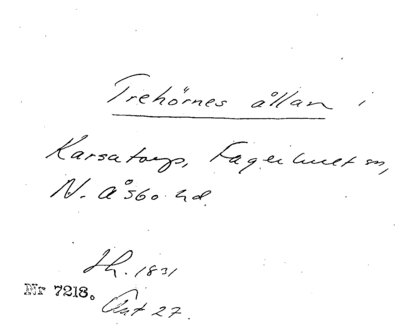 Trehörnes ållan i
Karsatorp, Fagerhult sn,
N. Åsbo hd.
Sh. 1831
Nr 7218.
Ant 27.